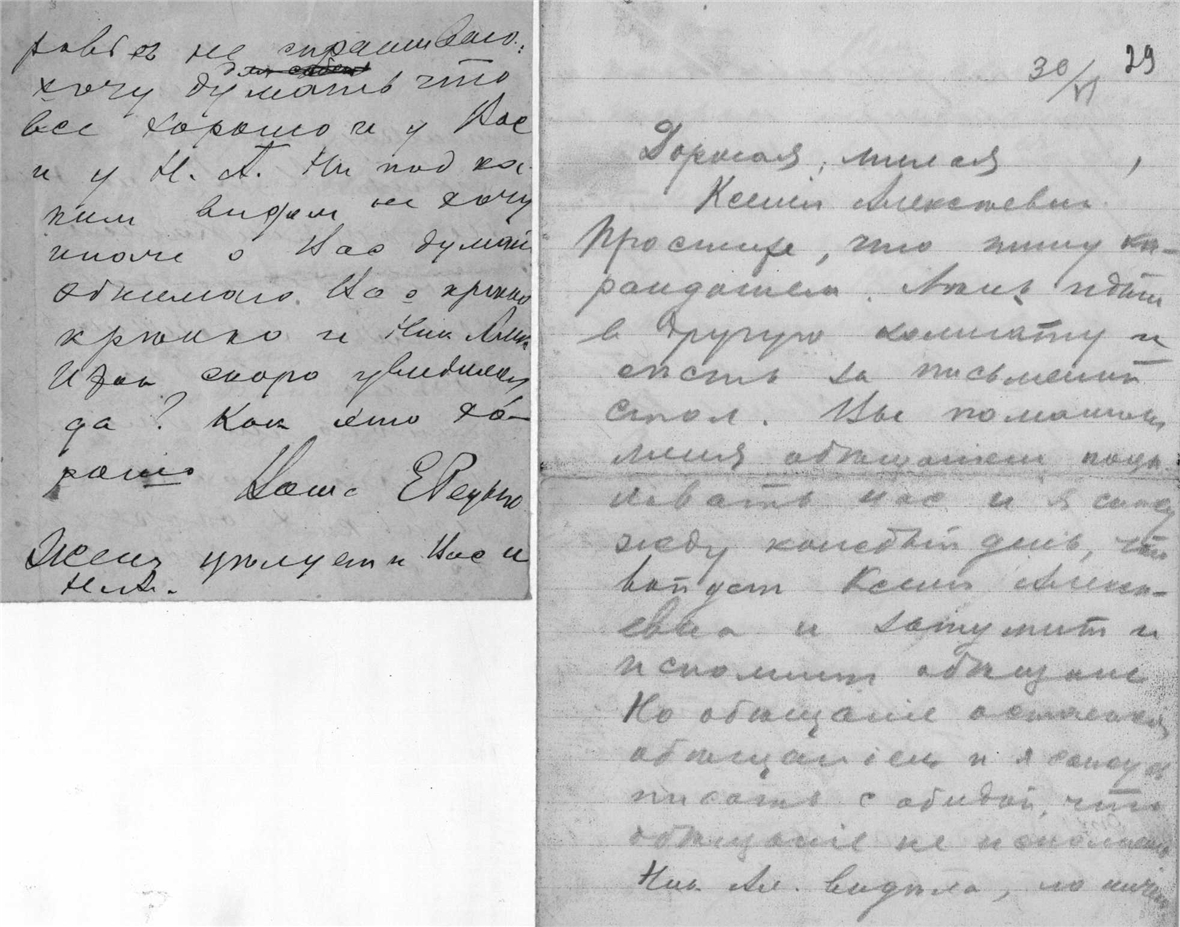 не спрашиваю.
хочу думать что
все хорошо и у Вас
и у Н. А. Ни под ка-
ким видом не хочу
иначе о Вас думать
Обнимаю Вас крѣпко
крѣпко и Ник Алек
скоро увидимся
да? Как это хо-
рошо Ваша Е Редько
Женя цѣлует и Вас и
Н.А.
29
30/VI
Дорогая, милая,
Ксенія Алексѣевна.
Простите, что пишу ка-
рандашем. Лень идти
в другую комнату и
сѣсть за письменный
стол. Вы поманили
меня обѣщанием
нас и я
жду каждый день, что
войдет Ксенія Алексѣ-
евна и зашумит и
исполнит обѣщаніе
Но обѣщаніе осталось
обѣщаніем и я
писать с обидой, что
обѣщаніе не исполнено
Ник. Ал. видѣла, но